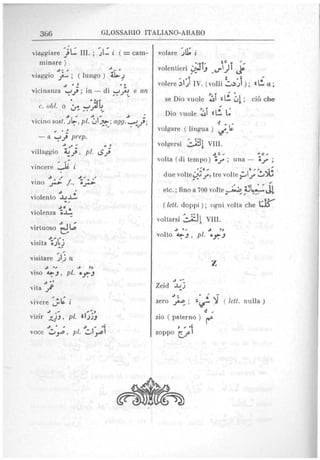 366 GLOSSARIO ITALIANO-ARABO
viaggiare سَافَر III. ; سَارَ i ( = cam-
minare )
viaggio سَفَر ; ( lungo )
vicinanza قُرْب ; in — di بِقُرْب e un
c. obl. o
vicino sost. جَار, pl. جِيرَان; agg. قَرِيب;
— a قُرْب prep.
villaggio قَرْيَة, pl. قُرًى
vincere غَلَب i
vino خَمْر f., خَمْرَة
violento شَدِيد
violenza شِدَّة
virtuoso صَالِح
visita زِيَارَة
visitare زَارَ u
viso وَجْه, pl. وُجُوه
vita عُمْر
vivere عَاشَ i
vizir وَزِير, pl. وُزَرَاء
voce صَوْت, pl. أَصْوَات
volare طَارَ i
volentieri
volere أَرَادَ IV. (volli أَرَدْتُ) ; شَاءَ a ;
se Dio vuole إِنْ شَاءَ اللّٰه ; ciò che
Dio vuole مَا شَاءَ اللّٰه
volgare ( lingua )
volgersi اِلْتَفَتَ VIII.
volta ( di tempo ) مَرَّة ; una — مَرَّةً ;
due volte مَرَّتَيْن, tre volte ثَلَاث مَرَّات
etc. ; fino a 700 volte
( lett. doppi ) ; ogni volta che كُلَّمَا
voltarsi اِلْتَفَتَ VIII.
volto وَجْه, pl. وُجُوه
Z
Zeid زَيْد
zero صِفْر ; لَا شَيْء ( lett. nulla )
zio ( paterno ) عَمّ
zoppo أَعْرَج